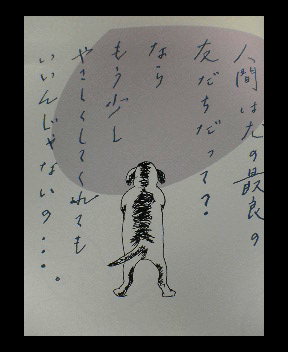 人間は犬の最良の
友だちだって?
なら
もう少し
やさしくしてくれても
いいんじゃないの・・・・